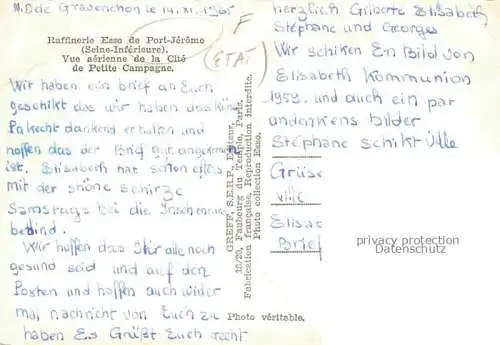 N.D de Gravenchon le 14.XI.1965
Raffinerie Esso de Port-Jérôme
(Seine-Inférieure).
Vue aérienne de la Cité
de Petite Campagne.
F
(ETAT)
Wir haben ein brief an Euch
geschikt das wir haben das
Pakecht dankend erhalten und
hoffen das der Brif gut angekommen
ist. Elisabeth hat schon
mit der shöne schirze
Samstags bei die
bedind.
Wir hoffen das Ihr alle noch
gesund seid und auf den
Posten und hoffen auch wider
mal nachricht von Euch zu
haben Es Grüßt Euch recht
GREFF, S.E.R.P., Editeur,
18/20, Faubourg du Temple, Paris.
Fabrication Française, Reproduction interdite.
Photo collection Esso.
Photo véritable.
herzlich Gilberte Elisabeth
Stéphane und Georges
Wir schiken En Bild von
Elisabeth Kommunion
1959. und auch ein par
andenkens bilder
Stéphane schikt Ville
Grüse
ville
Elisab
Brief
privacy protection
Datenschutz